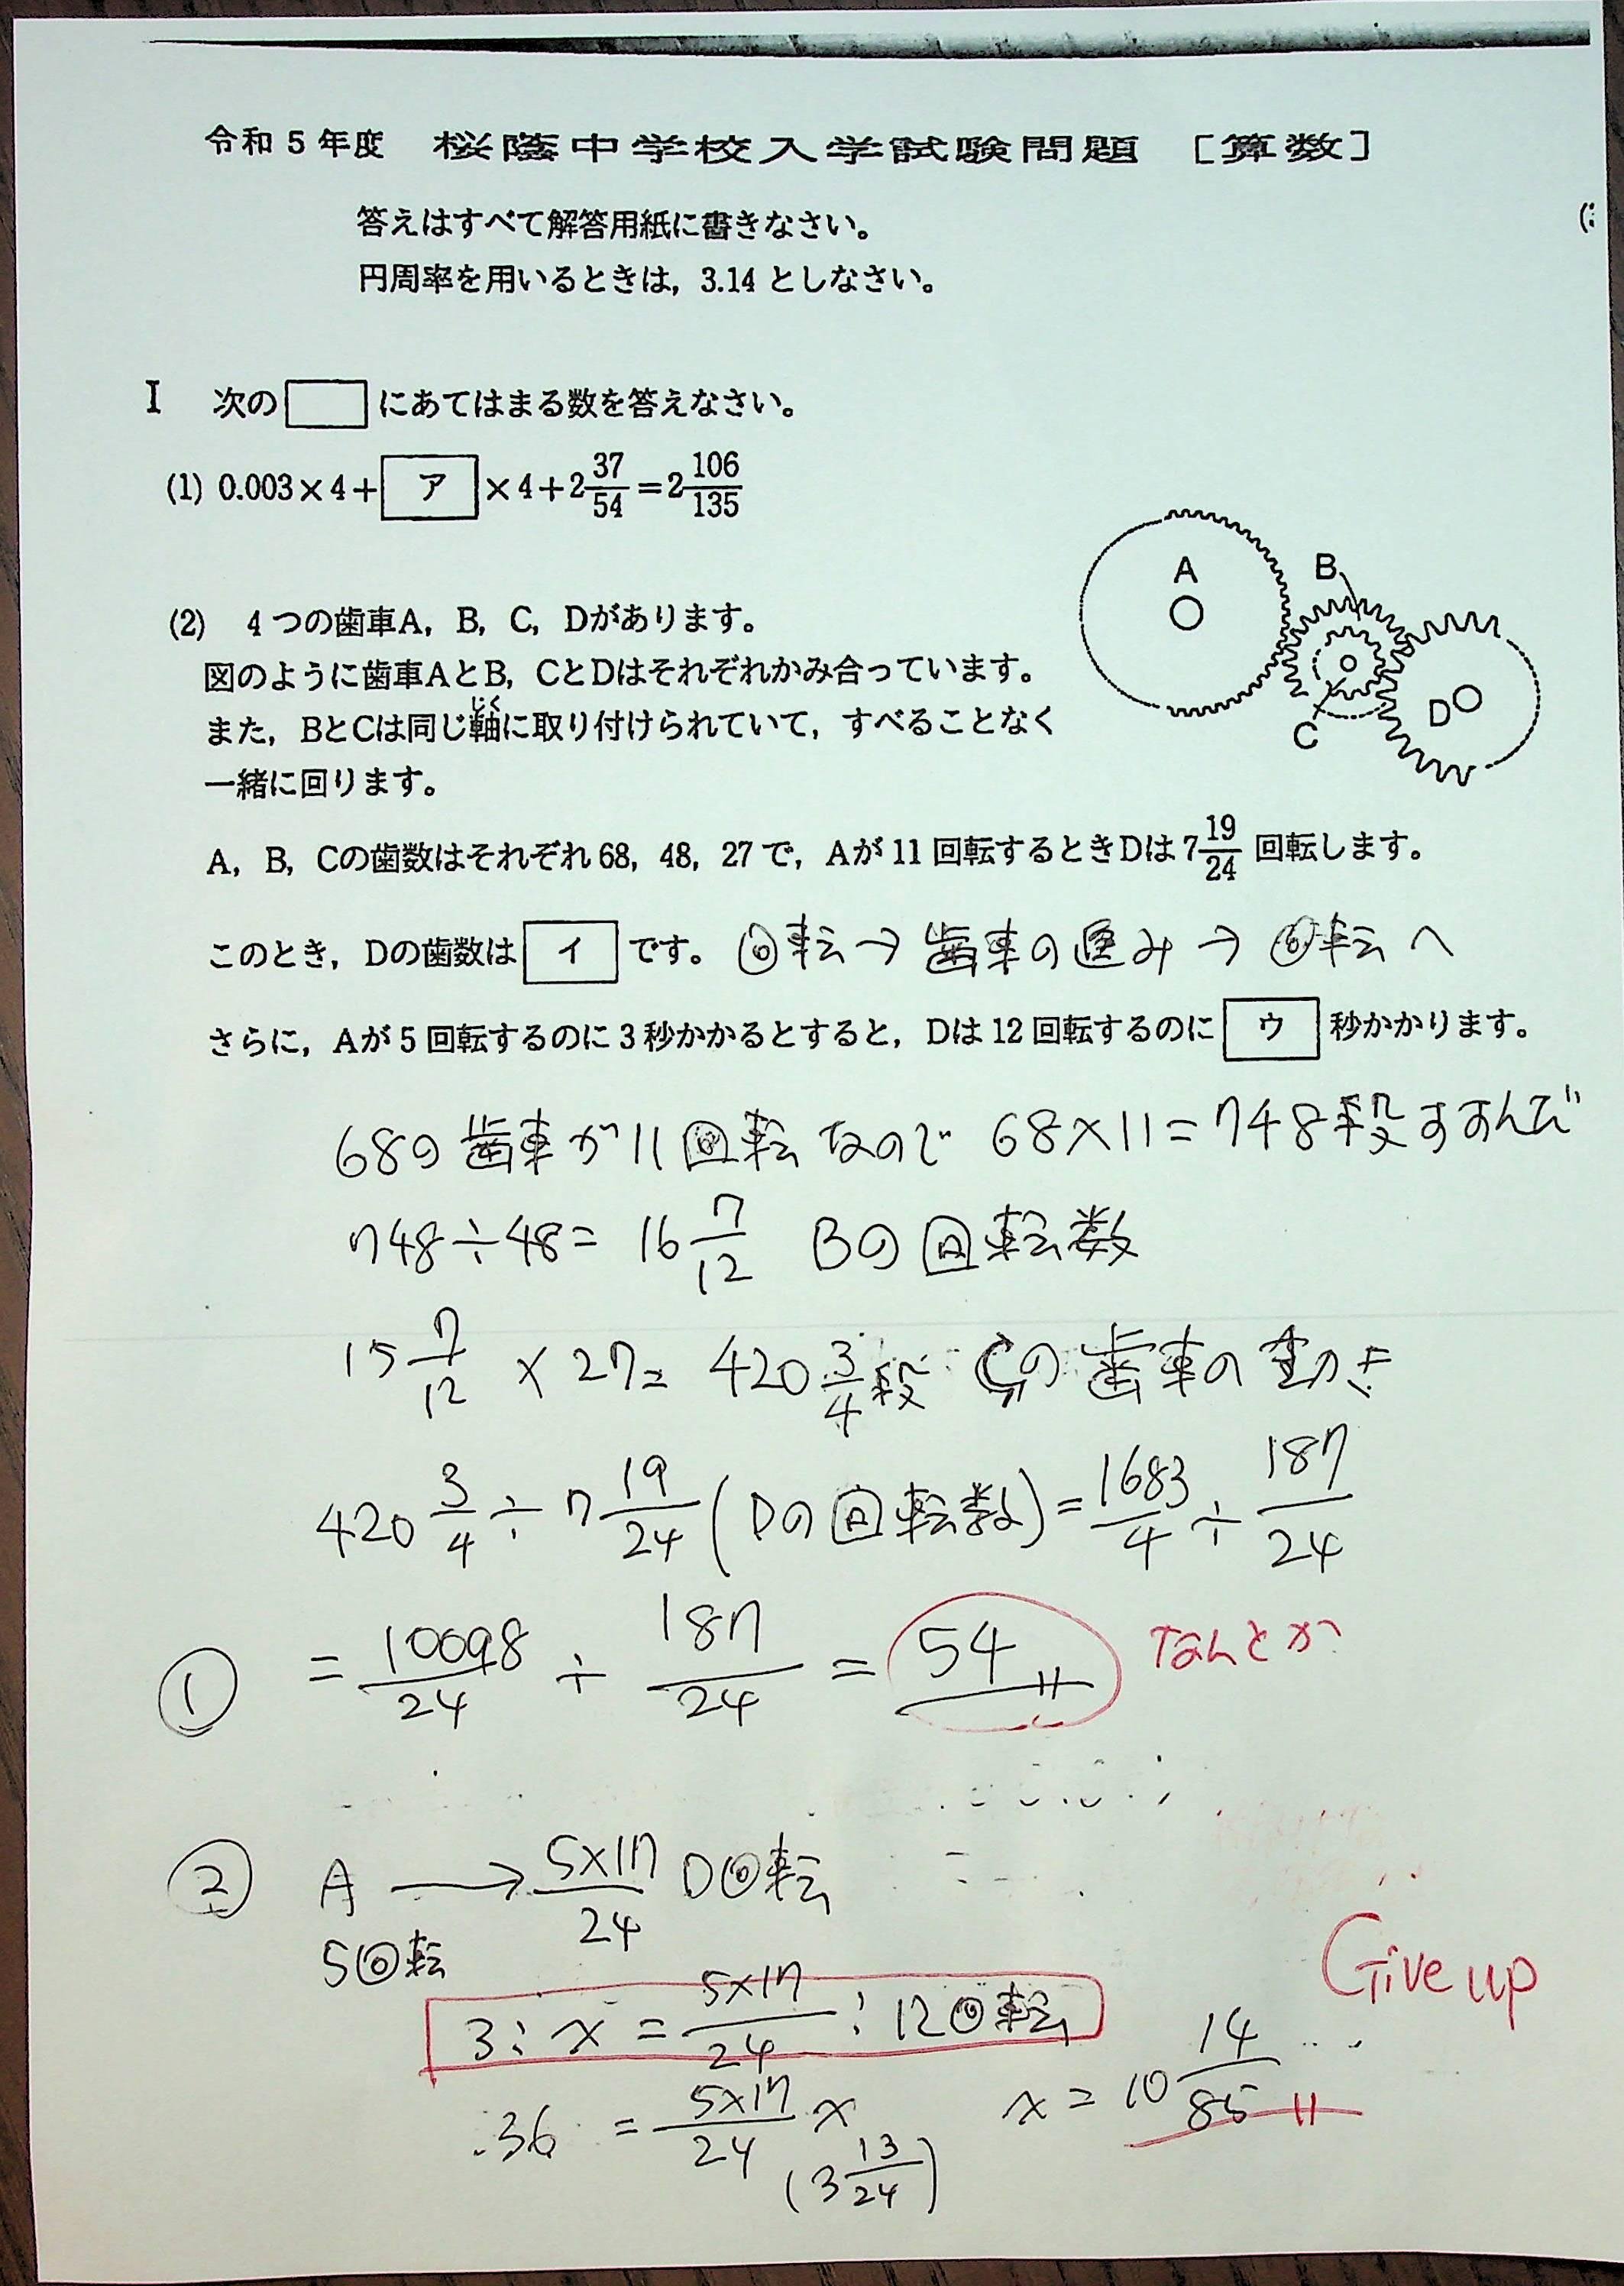 令和5年度 桜蔭中学校入学試験問題 [算数]
答えはすべて解答用紙に書きなさい。
円周率を用いるときは，3.14 としなさい。
I 次の□にあてはまる数を答えなさい。
(1) 0.003×4+ア×4+2 37/54=2 106/135
(2) 4つの歯車A，B，C，Dがあります。
図のように歯車AとB，CとDはそれぞれかみ合っています。
また，BとCは同じ軸(じく)に取り付けられていて，すべることなく
一緒に回ります。
A
B
C
D
A，B，Cの歯数はそれぞれ68，48，27で，Aが11回転するときDは7 19/24回転します。
このとき，Dの歯数はイです。 回転→歯車の進み→回転へ
さらに，Aが5回転するのに3秒かかるとすると，Dは12回転するのにウ秒かかります。
68の歯車が11回転なので 68×11=748段すすんで
748÷48= 16 7/12 Bの回転数
15 7/12 ×27= 420 3/4段 Cの歯車の動き
420 3/4÷7 19/24(Dの回転数)=1683/4÷187/24
① =10098/24÷187/24=54 なんとか
② A→5×17/24 D回転
5回転
Give up
3:x=5×17/24:12回転
36 =5×17/24 x x=10 14/85
(3 13/24)